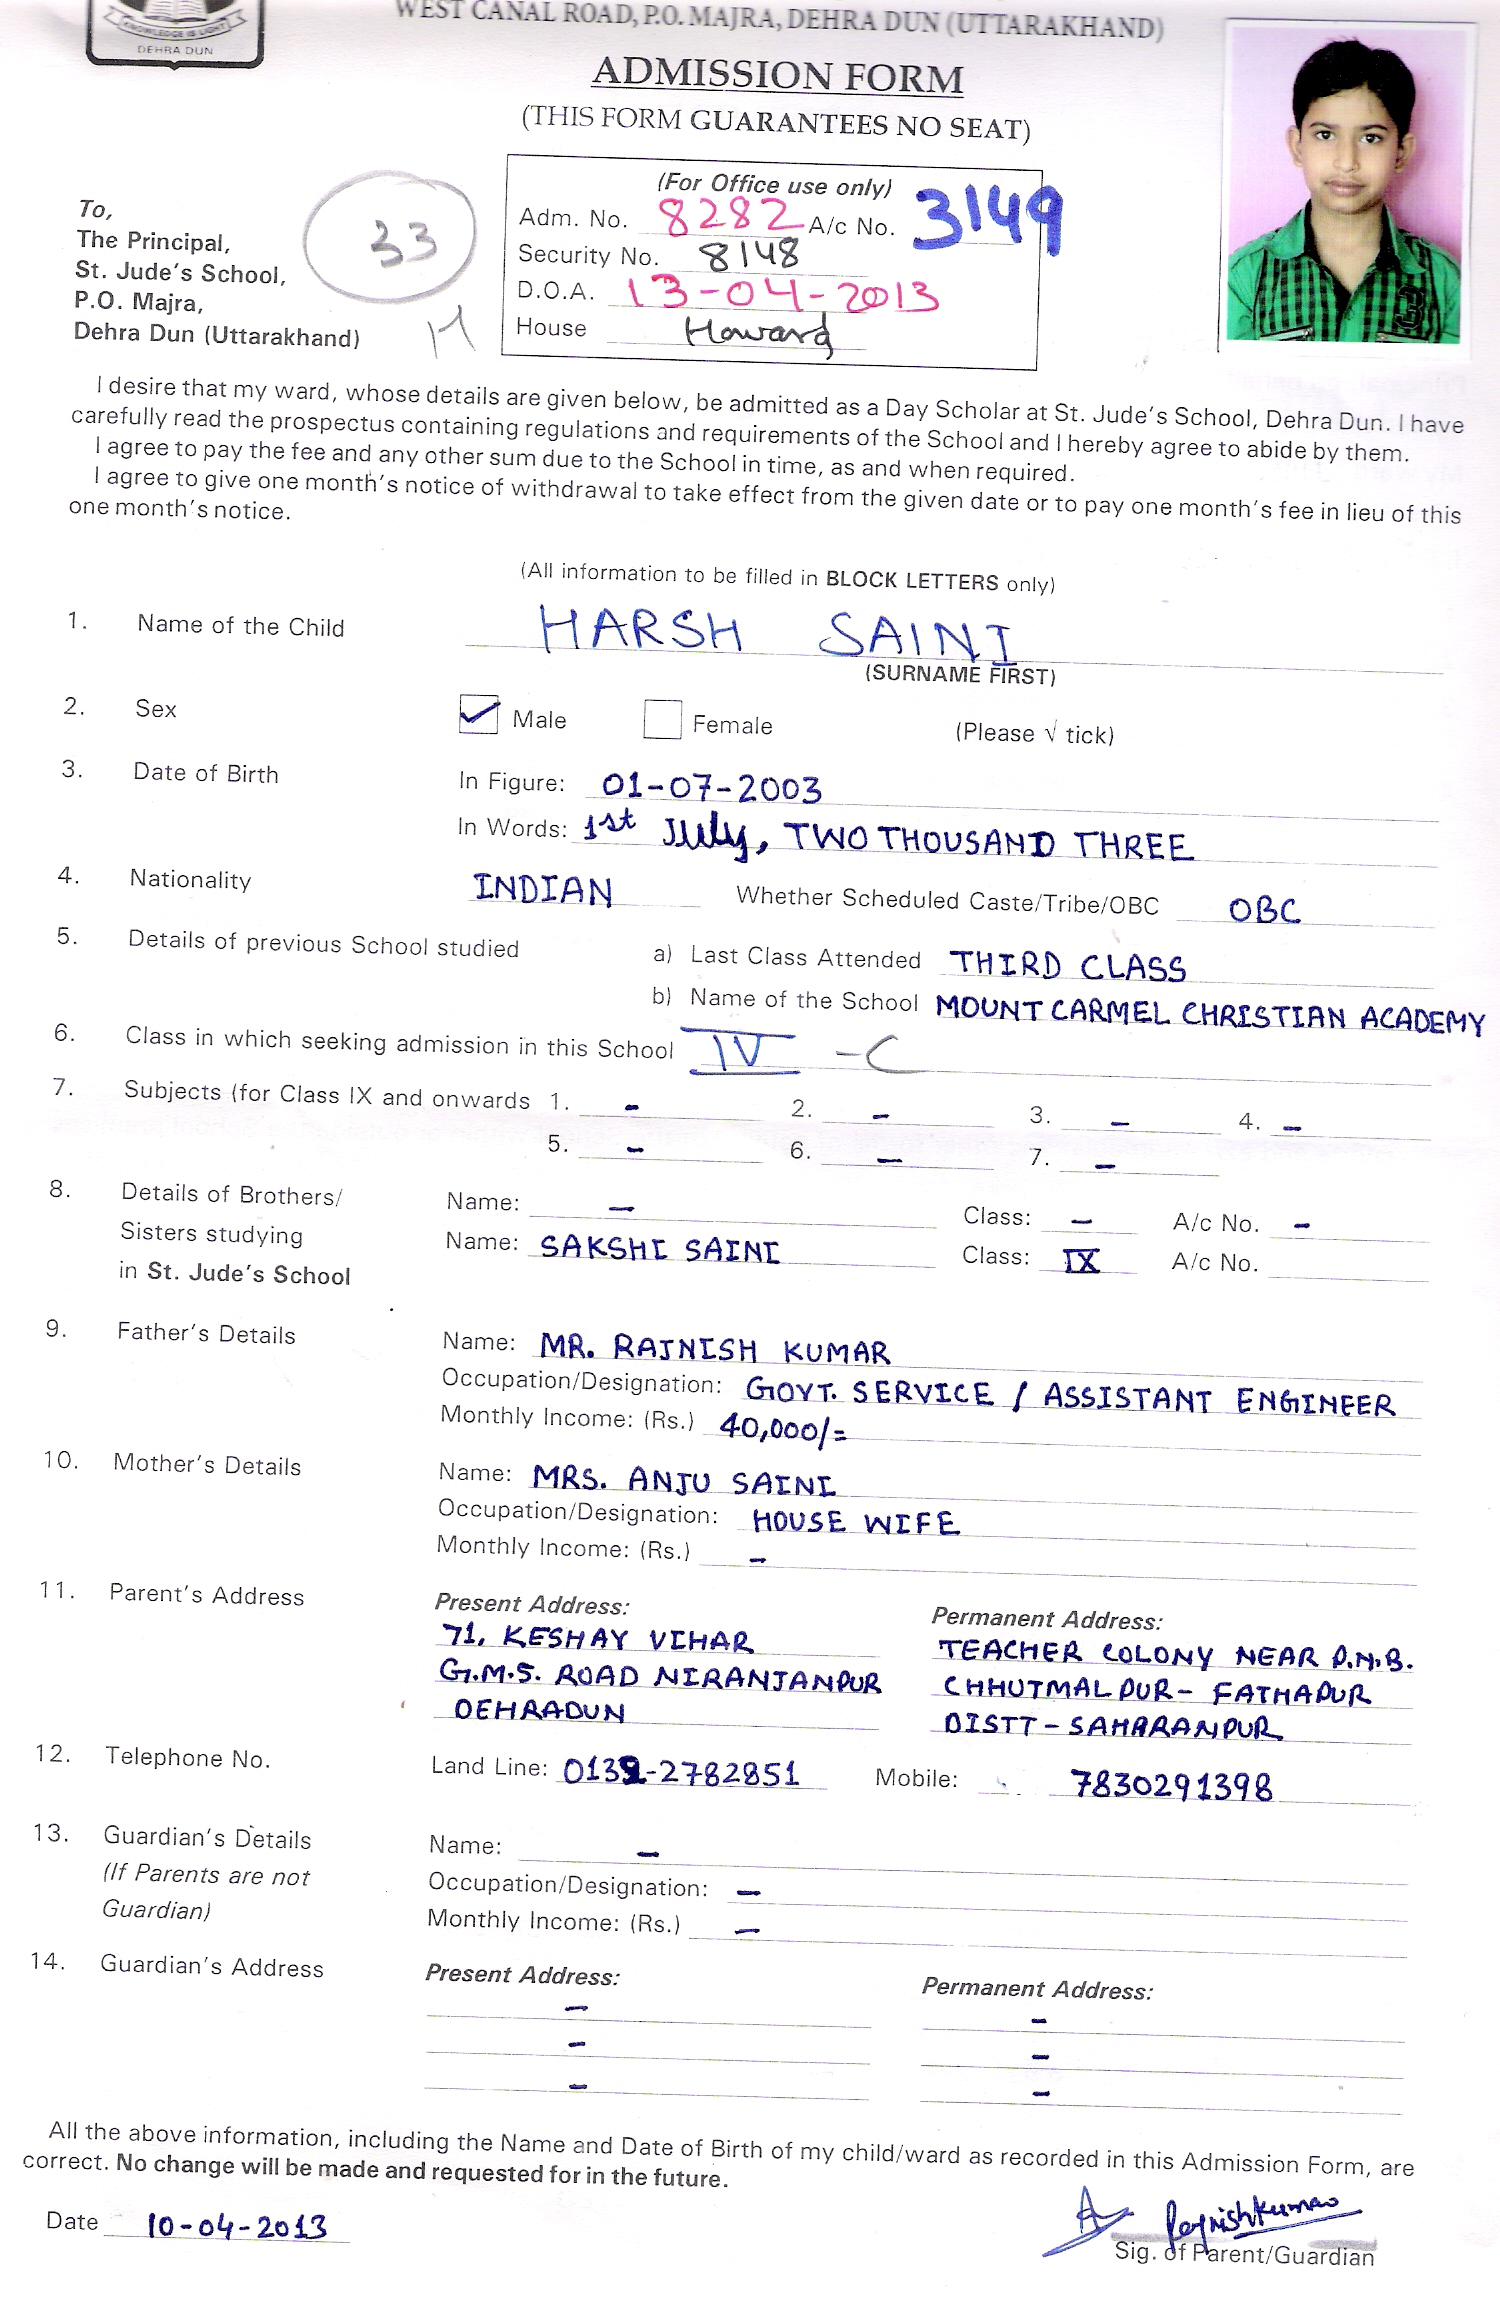 KNOWLEDGE IS LIGHT
DEHRA DUN
WEST CANAL ROAD, P.O. MAJRA, DEHRA DUN (UTTARAKHAND)
ADMISSION FORM
(THIS FORM GUARANTEES NO SEAT)
(For Office use only)
Adm. No. 8282 A/c No. 3149
Security No. 8148
D.O.A. 13-04-2013
House Howard
To,
The Principal,
St. Jude's School,
P.O. Majra,
Dehra Dun (Uttarakhand)
33
I desire that my ward, whose details are given below, be admitted as a Day Scholar at St. Jude's School, Dehra Dun. I have
carefully read the prospectus containing regulations and requirements of the School and I hereby agree to abide by them.
I agree to pay the fee and any other sum due to the School in time, as and when required.
I agree to give one month's notice of withdrawal to take effect from the given date or to pay one month's fee in lieu of this
one month's notice.
(All information to be filled in BLOCK LETTERS only)
1. Name of the Child HARSH SAINI
(SURNAME FIRST)
2. Sex ✓ Male Female (Please √ tick)
3. Date of Birth In Figure: 01-07-2003
In Words: 1st July, TWO THOUSAND THREE
4. Nationality INDIAN Whether Scheduled Caste/Tribe/OBC OBC
5. Details of previous School studied a) Last Class Attended THIRD CLASS
b) Name of the School MOUNT CARMEL CHRISTIAN ACADEMY
6. Class in which seeking admission in this School IV -C
7. Subjects (for Class IX and onwards 1. - 2. - 3. - 4. -
5. - 6. - 7. -
8. Details of Brothers/ Name: - Class: - A/c No. -
Sisters studying Name: SAKSHI SAINI Class: IX A/c No.
in St. Jude's School
9. Father's Details Name: MR. RAJNISH KUMAR
Occupation/Designation: GOVT. SERVICE / ASSISTANT ENGINEER
Monthly Income: (Rs.) 40,000/=
10. Mother's Details Name: MRS. ANJU SAINI
Occupation/Designation: HOUSE WIFE
Monthly Income: (Rs.) -
11. Parent's Address Present Address: Permanent Address:
71, KESHAV VIHAR TEACHER COLONY NEAR P.N.B.
G.M.S. ROAD NIRANJANPUR CHHUTMALPUR- FATHAPUR
DEHRADUN DISTT-SAHARANPUR
12. Telephone No. Land Line: 0132-2782851 Mobile: 7830291398
13. Guardian's Details Name: -
(If Parents are not Occupation/Designation: -
Guardian) Monthly Income: (Rs.) -
14. Guardian's Address Present Address: Permanent Address:
- -
- -
- -
All the above information, including the Name and Date of Birth of my child/ward as recorded in this Admission Form, are
correct. No change will be made and requested for in the future.
Date 10-04-2013 Rajnishkumar
Sig. of Parent/Guardian